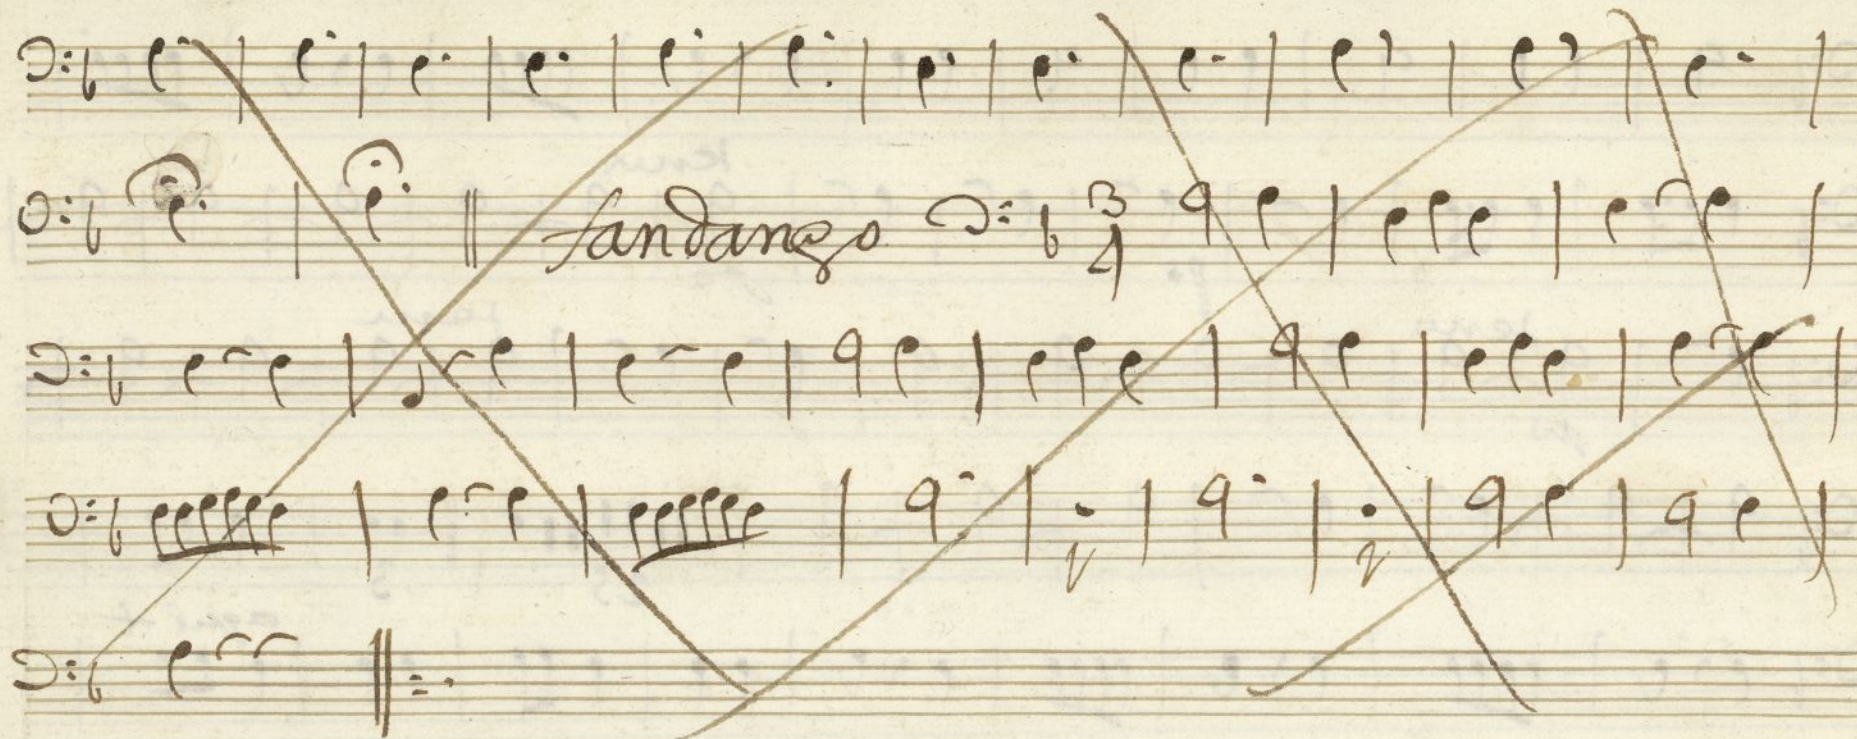 fandango 3/4